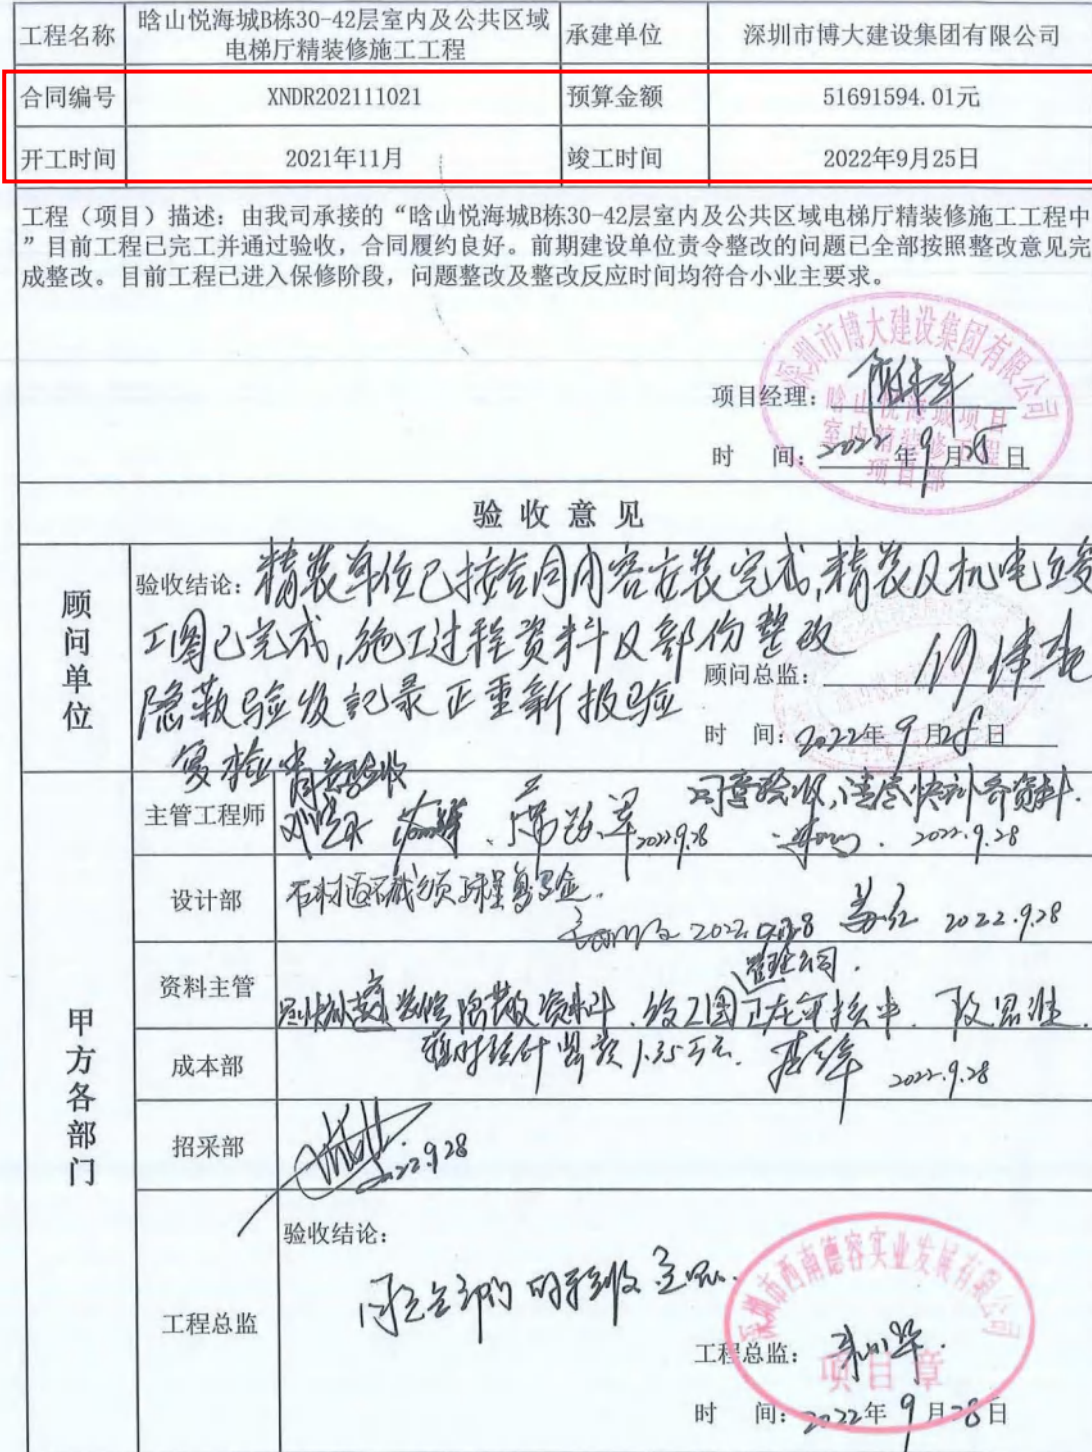 工程名称 晗山悦海城B栋30-42层室内及公共区域 承建单位 深圳市博大建设集团有限公司
电梯厅精装修施工工程
合同编号 XNDR202111021 预算金额 51691594.01元
开工时间 2021年11月 竣工时间 2022年9月25日
工程（项目）描述：由我司承接的“晗山悦海城B栋30-42层室内及公共区域电梯厅精装修施工工程中
”目前工程已完工并通过验收，合同履约良好。前期建设单位责令整改的问题已全部按照整改意见完
成整改。目前工程已进入保修阶段，问题整改及整改反应时间均符合小业主要求。
深圳市博大建设集团有限公司
晗山悦海城项目
室内精装修工程
项目部
项目经理：
时 间：2022年9月25日
验收意见
顾问单位
验收结论：精装单位已按合同内容安装完成，精装及机电竣
工图已完成，施工过程资料及部份整改
隐蔽验收记录正重新报验
顾问总监：
时 间：2022年9月28日
复检 同意验收
甲方各部门
主管工程师 2022.9.28 同意验收，请尽快补齐资料. 2022.9.28
设计部 石材
2022.9.28 2022.9.28
资料主管 监理公司.
隐蔽资料、竣工图正在审核中.
成本部 暂时
2022.9.28
招采部 2022.9.28
工程总监
验收结论：
同意各部门的验收意见.
深圳市西南德容实业发展有限公司
项目章
工程总监：
时 间：2022年9月28日